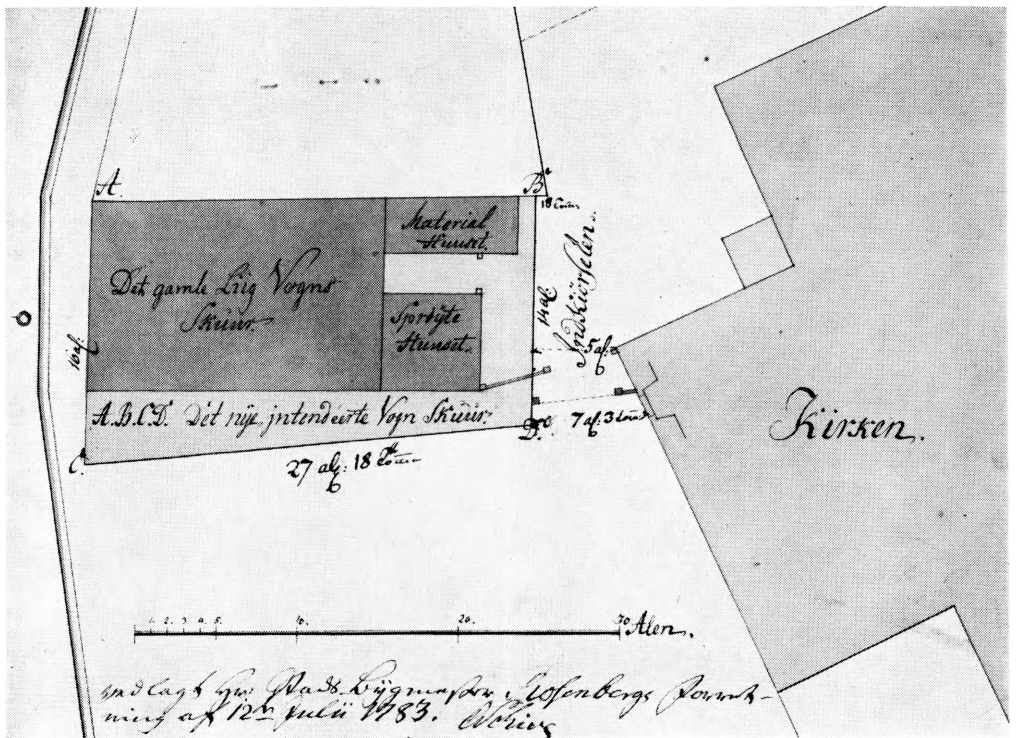 A.
B.
18 Tom̅
Material
Huuset.
Det gamle Liig Vogns
Skuur.
Sprøyte
Huuset.
16 al:
14 al:
Indkiørselen.
5 al:
A.B.C.D. Det nÿe intendeerte Vogn Skuur.
D.
7 al: 3 Tom̅
C.
27 al: 18 Tom̅
Kirken.
1. 2. 3. 4. 5. 10. 20. 30 Alen.
vedlagt Hr: Stads-Bÿgmester Rosenbergs Forret-
ning af 12te Julii 1783.